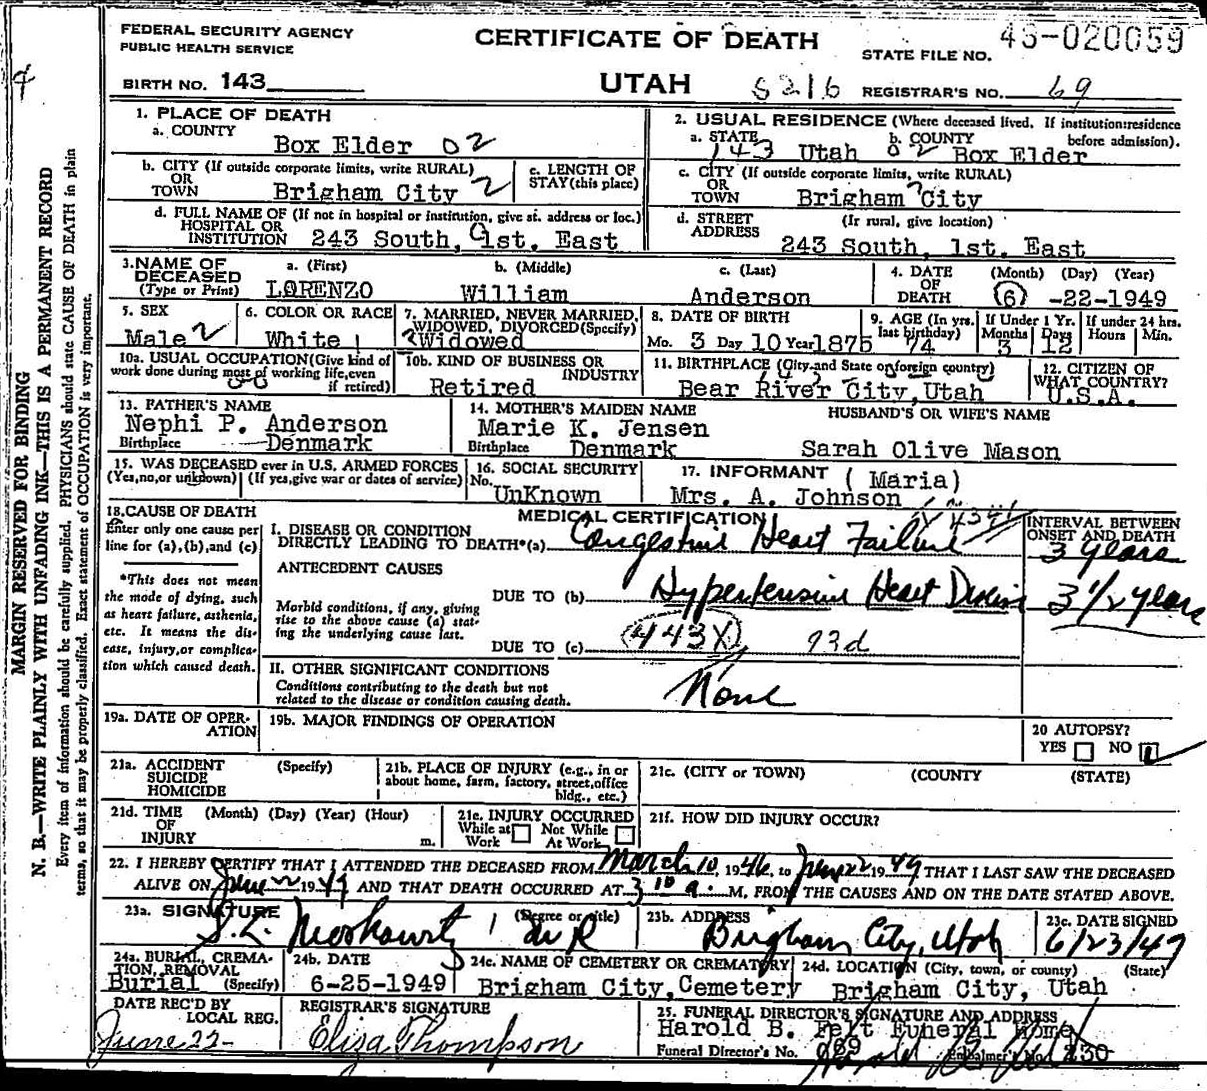 FEDERAL SECURITY AGENCY
PUBLIC HEALTH SERVICE
CERTIFICATE OF DEATH
STATE FILE NO. 020059
BIRTH NO. 143
UTAH
S216
REGISTRAR'S NO. 69
MARGIN RESERVED FOR BINDING
N. B.—WRITE PLAINLY WITH UNFADING INK—THIS IS A PERMANENT RECORD
Every item of information should be carefully supplied. PHYSICIANS should state CAUSE OF DEATH in plain
terms, so that it may be properly classified. Exact statement of OCCUPATION is very important.
1. PLACE OF DEATH
a. COUNTY
Box Elder 02
2. USUAL RESIDENCE (Where deceased lived. If institution:residence before admission).
a. STATE 143 Utah 02 b. COUNTY Box Elder
b. CITY (If outside corporate limits, write RURAL)
OR
TOWN Brigham City 2
c. LENGTH OF
STAY (this place)
c. CITY (If outside corporate limits, write RURAL)
OR
TOWN Brigham City
d. FULL NAME OF (If not in hospital or institution, give st. address or loc.)
HOSPITAL OR
INSTITUTION 243 South, 1st. East
d. STREET (If rural, give location)
ADDRESS
243 South, 1st. East
3. NAME OF
DECEASED
(Type or Print)
a. (First) LORENZO
b. (Middle) William
c. (Last) Anderson
4. DATE
OF
DEATH
(Month) (Day) (Year)
6 -22-1949
5. SEX
Male 2
6. COLOR OR RACE
White 1
7. MARRIED, NEVER MARRIED,
WIDOWED, DIVORCED (Specify)
Widowed
8. DATE OF BIRTH
Mo. 3 Day 10 Year 1875
9. AGE (In yrs. last birthday) 74
If Under 1 Yr. Months 3 Days 12
If under 24 hrs. Hours Min.
10a. USUAL OCCUPATION (Give kind of
work done during most of working life, even
if retired)
10b. KIND OF BUSINESS OR
INDUSTRY
Retired
11. BIRTHPLACE (City and State or foreign country)
Bear River City, Utah
12. CITIZEN OF
WHAT COUNTRY?
U.S.A.
13. FATHER'S NAME
Nephi P. Anderson
Birthplace Denmark
14. MOTHER'S MAIDEN NAME
Marie K. Jensen
Birthplace Denmark
HUSBAND'S OR WIFE'S NAME
Sarah Olive Mason
15. WAS DECEASED ever in U.S. ARMED FORCES
(Yes, no, or unknown) (If yes, give war or dates of service)
16. SOCIAL SECURITY
No.
UnKnown
17. INFORMANT (Maria)
Mrs. A. Johnson
18. CAUSE OF DEATH
Enter only one cause per
line for (a), (b), and (c)
*This does not mean
the mode of dying, such
as heart failure, asthenia,
etc. It means the dis-
ease, injury, or complica-
tion which caused death.
MEDICAL CERTIFICATION
I. DISEASE OR CONDITION
DIRECTLY LEADING TO DEATH*(a) Congestive Heart Failure
INTERVAL BETWEEN
ONSET AND DEATH
3 years
ANTECEDENT CAUSES
Morbid conditions, if any, giving
rise to the above cause (a) stat-
ing the underlying cause last.
DUE TO (b) Hypertensive Heart Disease 3 1/2 years
DUE TO (c) 443X 93d
II. OTHER SIGNIFICANT CONDITIONS
Conditions contributing to the death but not
related to the disease or condition causing death.
None
19a. DATE OF OPER-
ATION
19b. MAJOR FINDINGS OF OPERATION
20 AUTOPSY?
YES NO
21a. ACCIDENT (Specify)
SUICIDE
HOMICIDE
21b. PLACE OF INJURY (e.g., in or
about home, farm, factory, street, office
bldg., etc.)
21c. (CITY or TOWN) (COUNTY) (STATE)
21d. TIME (Month) (Day) (Year) (Hour)
OF
INJURY m.
21e. INJURY OCCURRED
While at Work Not While At Work
21f. HOW DID INJURY OCCUR?
22. I HEREBY CERTIFY THAT I ATTENDED THE DECEASED FROM March 10, 1946, to June 22 1949 THAT I LAST SAW THE DECEASED
ALIVE ON June 22 1949 AND THAT DEATH OCCURRED AT 3 10 a. M, FROM THE CAUSES AND ON THE DATE STATED ABOVE.
23a. SIGNATURE (Degree or title)
23b. ADDRESS
Brigham City, Utah
23c. DATE SIGNED
6/23/49
24a. BURIAL, CREMA-
TION, REMOVAL
Burial (Specify)
24b. DATE
6-25-1949
24c. NAME OF CEMETERY OR CREMATORY
Brigham City, Cemetery
24d. LOCATION (City, town, or county) (State)
Brigham City, Utah
DATE REC'D BY
LOCAL REG.
June 22-
REGISTRAR'S SIGNATURE
Eliza Thompson
25. FUNERAL DIRECTOR'S SIGNATURE AND ADDRESS
Harold B. Felt Funeral Home
Funeral Director's No. 069 Embalmer's No. 230